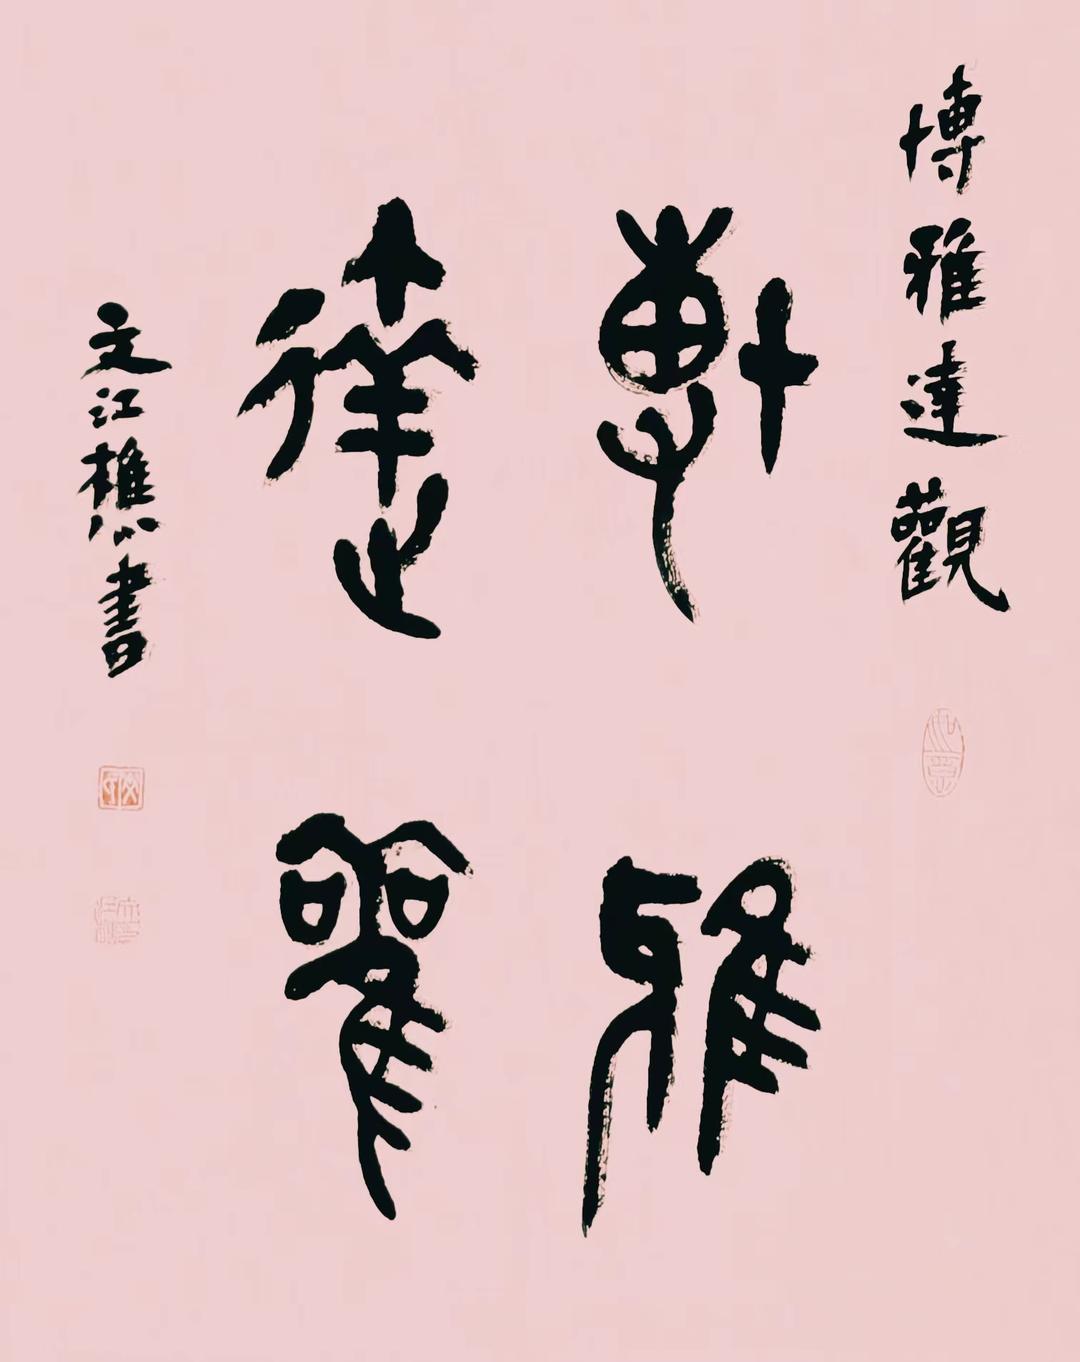 博雅達觀
博雅
達觀
文江樵心書